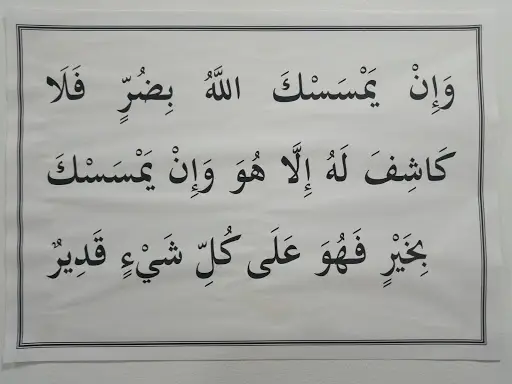 وَإِنْ يَمْسَسْكَ اللَّهُ بِضُرٍّ فَلَا
كَاشِفَ لَهُ إِلَّا هُوَ وَإِنْ يَمْسَسْكَ
بِخَيْرٍ فَهُوَ عَلَى كُلِّ شَيْءٍ قَدِيرٌ